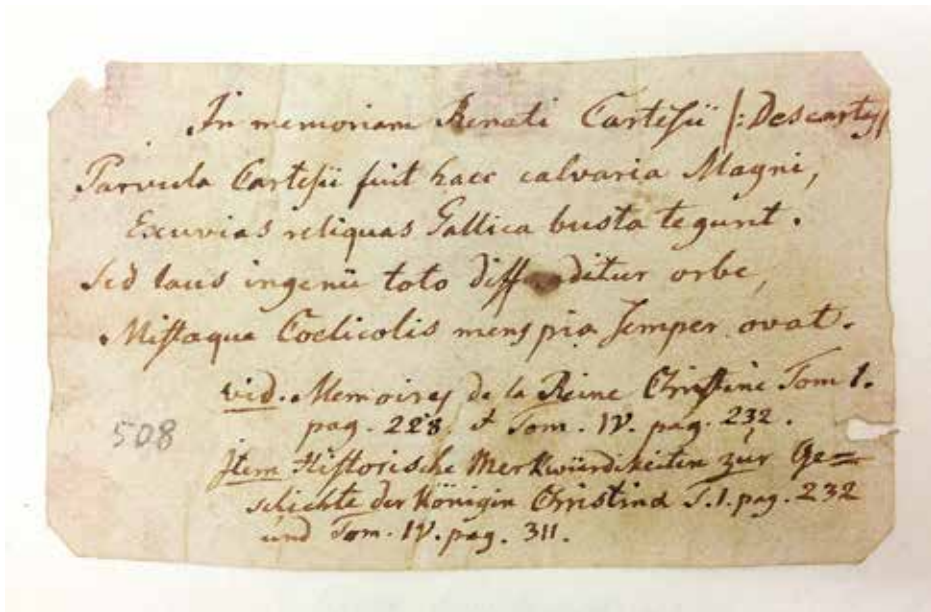 In memoriam Renati Cartesii /: Descartes/
Parvula Cartesii fuit haec calvaria Magni,
Exuvias reliquas Gallica busta tegunt.
Sed laus ingenii toto diffunditur orbe,
Mistaque Coelicolis mens pia semper ovat.
vid. Memoires de la Reine Christine Tom 1.
pag. 228. & Tom. IV. pag. 232.
508
Item Historische Merkwürdikeiten zur Ge=
schichte der Königin Christina T. 1. pag. 232
und Tom. IV. pag. 311.